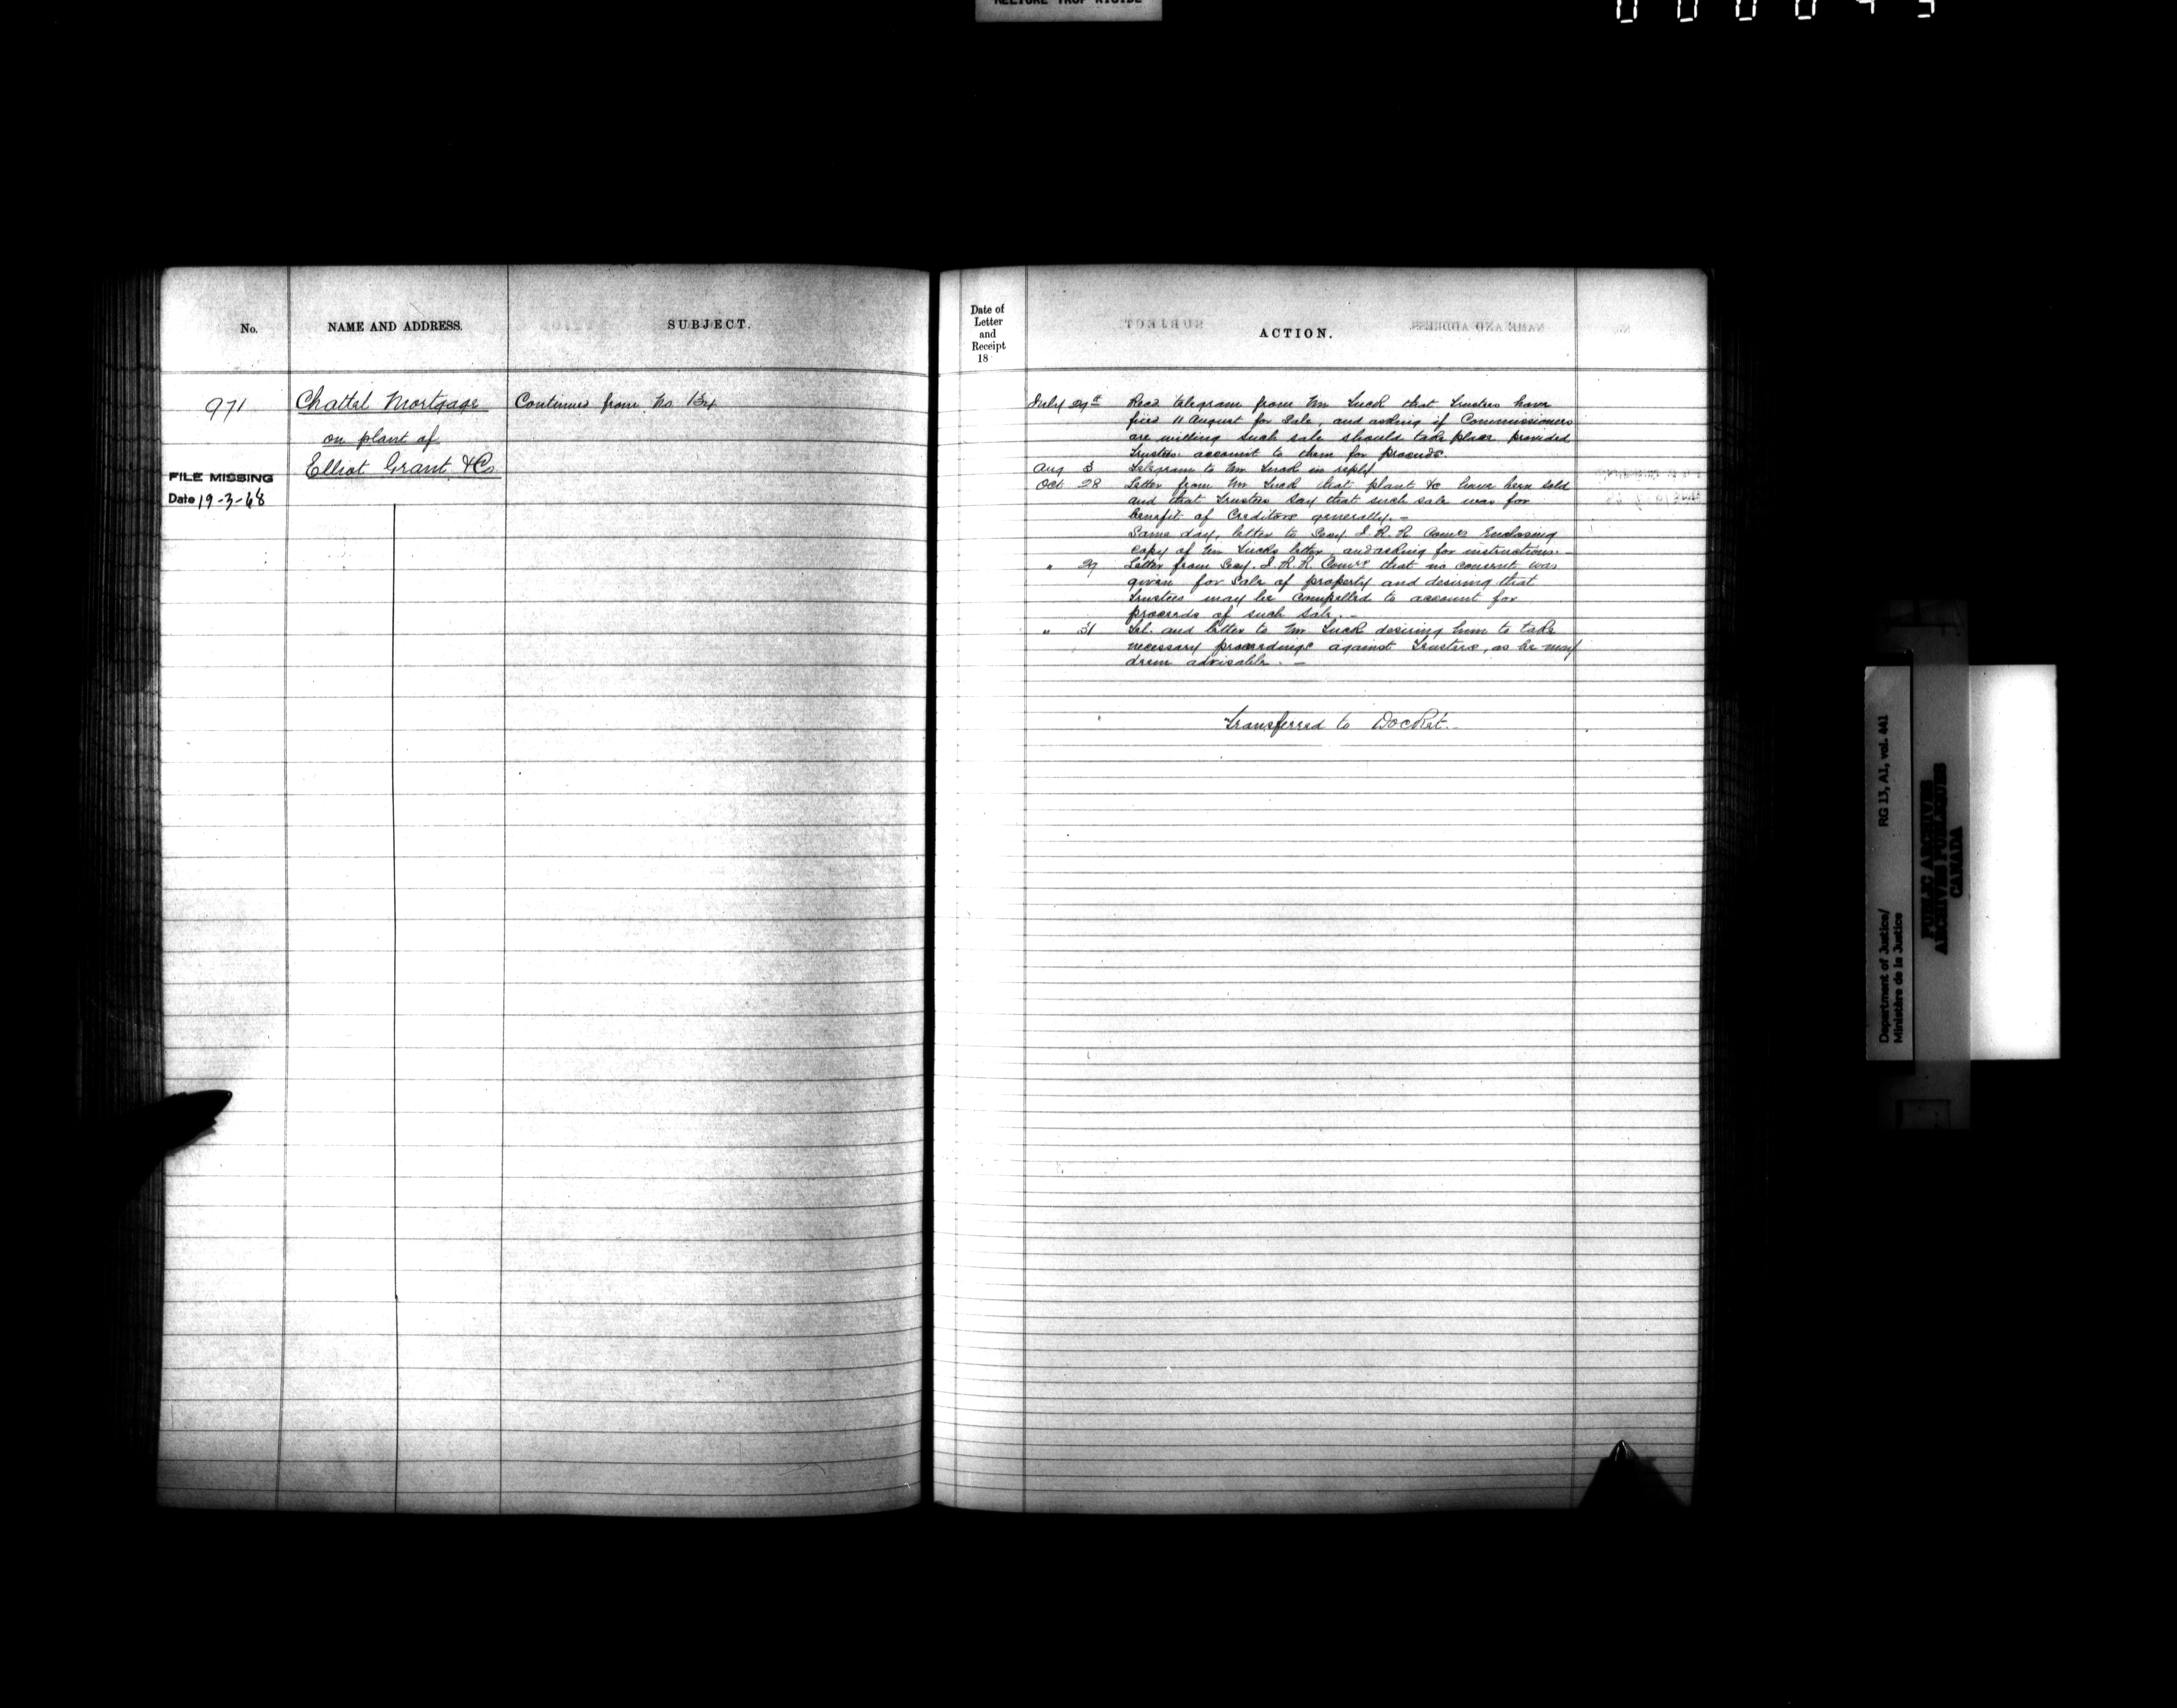 RELIURE TROP RIGIDE
No.
NAME AND ADDRESS.
SUBJECT.
971
Chattel Mortgage
on plant of
Elliot Grant & Co
Continued from No 134
FILE MISSING
Date 19-3-68
Date of
Letter
and
Receipt
18
ACTION.
July 29th Recd telegram from Mr Luck that Trustees have
fixed 11 August for Sale, and asking if Commissioners
are willing such sale should take place provided
Trustees account to them for proceeds.
Aug 3 Telegram to Mr Luck in reply.
Oct 28 Letter from Mr Luck that plant &c have been sold
and that Trustees say that such sale was for
benefit of Creditors generally. –
Same day, letter to Secy I.R.R. Comrs Enclosing
copy of Mr Lucks letter, and asking for instructions. –
" 29 Letter from Secy. I.R.R. Comrs that no consent was
given for Sale of property and desiring that
Trustees may be Compelled to account for
proceeds of such sale. –
" 31 Tel. and letter to Mr Luck desiring him to take
necessary proceedings against Trustees, as he may
deem advisable. –
Transferred to Docket.
Department of Justice/
Ministère de la Justice
RG 13, A1, vol. 441
PUBLIC ARCHIVES
ARCHIVES PUBLIQUES
CANADA